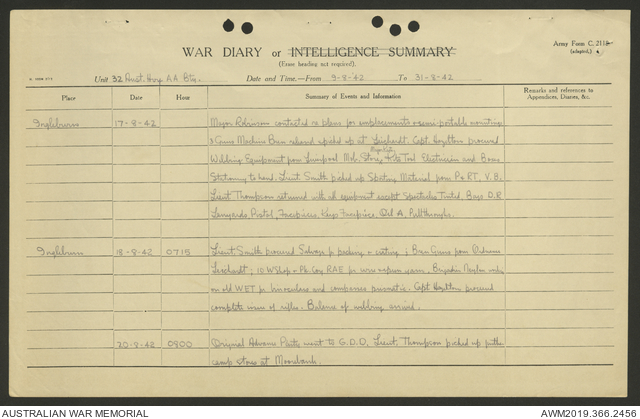 Army Form C. 2118
(adapted.)
WAR DIARY or INTELLIGENCE SUMMARY
(Erase heading not required).
Unit 32 Aust. Hvy AA Bty. Date and Time.—From 9-8-42 To 31-8-42
Place Date Hour Summary of Events and Information Remarks and references to
Appendices, Diaries, &c.
Ingleburn 17-8-42 Major Robinson contacted re plans for emplacements & semi portable mountings
& Guns Machine Bren picked up at Leichardt. Capt. Hazelton procured
Welding Equipment from Liverpool Mob. Store, Kits Tool Electrician and Boxes
Stationary to hand. Lieut Smith picked up Sporting Material from P & RT, V.B.
Lieut Thompson returned with all equipment except Spectacles Tinted, Bags D.R.
Lanyards Pistol, Facepieces, Oil A, Pullthroughs.
Ingleburn 18-8-42 0715 Lieut. Smith procured for packing; Bren Guns from Ordnance
Leichardt; RAE for
on old WET for binoculars and compasses prismatic. Capt. Hazelton procured
complete issue of rifles. Balance of webbing arrived.
20-8-42 0800 Original Advance Party went to G.D.D. Lieut. Thompson picked up
camp stores at Moorebank.
AUSTRALIAN WAR MEMORIAL AWM2019.366.2456